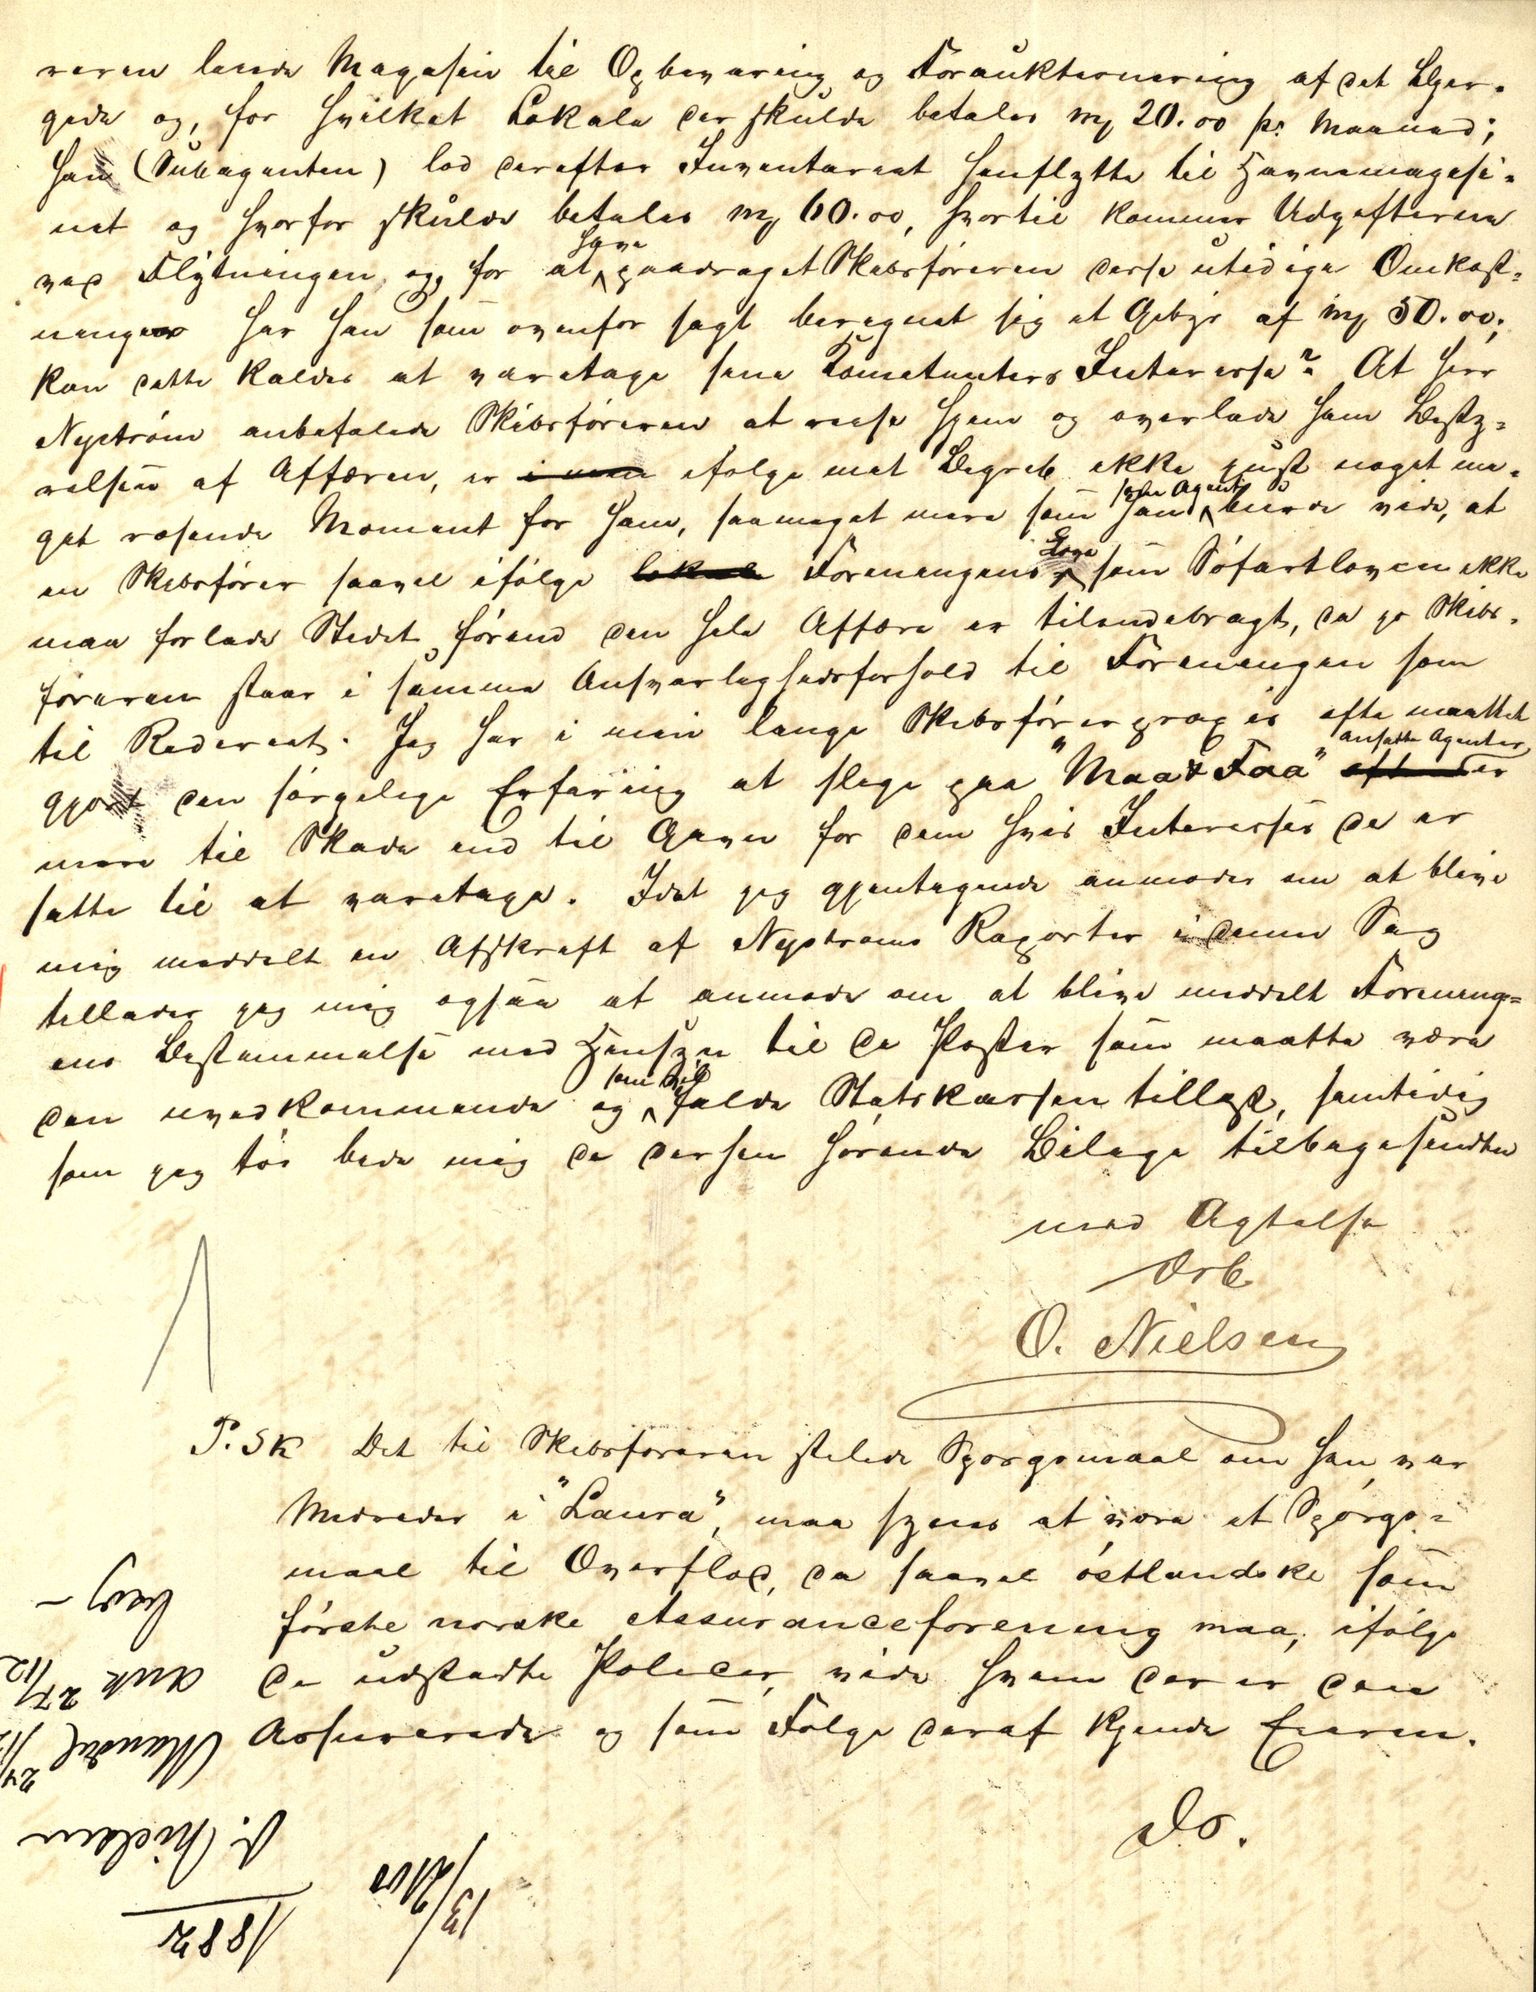 reren leiede Magasin til Opbevaring og Forauktionering af det Bjer-
gede og, for hvilket Lokale der skulde betales mƶ 20.00 pr. Maaned;
han (Subagenten) lod derefter Inventariet henflytte til Havnemagasi-
net og hvorfor skulde betales mƶ 60.00, hvortil kommer Udgifterne
ved Flytningen og, for at have paadraget Skibsføreren disse utidige Omkost-
ninger har han som ovenfor sagt beregnet sig et Gebyr af mƶ 50.00;
kan dette kaldes at varetage sine Komitenters Interesse? At herr
Nystrøm anbefalede Skibsføreren at reise hjem og overlade ham Besty-
relsen af Affæren, er i mine ifølge mit Begreb ikke just noget me-
get rosende Moment for ham, saameget mere som han som Agent burde vide, at
en Skibsfører saavel ifølge Foreningens Love som Søfartloven ikke
maa forlade Stedet førend den hele Affære er tilendebragt, da jo Skibs-
føreren staar i samme Ansvarlighedsforhold til Foreningen som
til Rederiet. Jeg har i min lange Skibsførerpraxis ofte maattet
gjort den sørgelige Erfaring at slige paa "Maa & Faa" ansatte Agenter er
mere til Skade end til Gavn for dem hvis Interesser de er
satte til at varetage. Idet jeg gjentagende anmoder om at blive
mig meddelt en Afskrift af Nystrøms Raporter i denne Sag
tillader jeg mig ogsaa at anmode om at blive meddelt Forening-
ens Bestemmelse med Hensyn til de Poster som maatte være
den uvedkommende og som vil falde Statskassen tillast, samtidig
som jeg tør bede mig de dersen hørende Bilage tilbagesendte
med Agtelse
Ærb
O. Nielsen
P. Sk Det til Skibsføreren stilede Spørgsmaal om han var
Medreder i "Laura", maa synes at være et Spørgs-
maal til Overflod, da saavel østlandske som
første norske Assuranceforening maa, ifølge
de udstædte Policer, vide hvem der er den
Assurerede og som Følge deraf kjende Eieren.
Ds.
1882
O. Nielsen
Mandal 24/12
Ank 27/12
Besv –